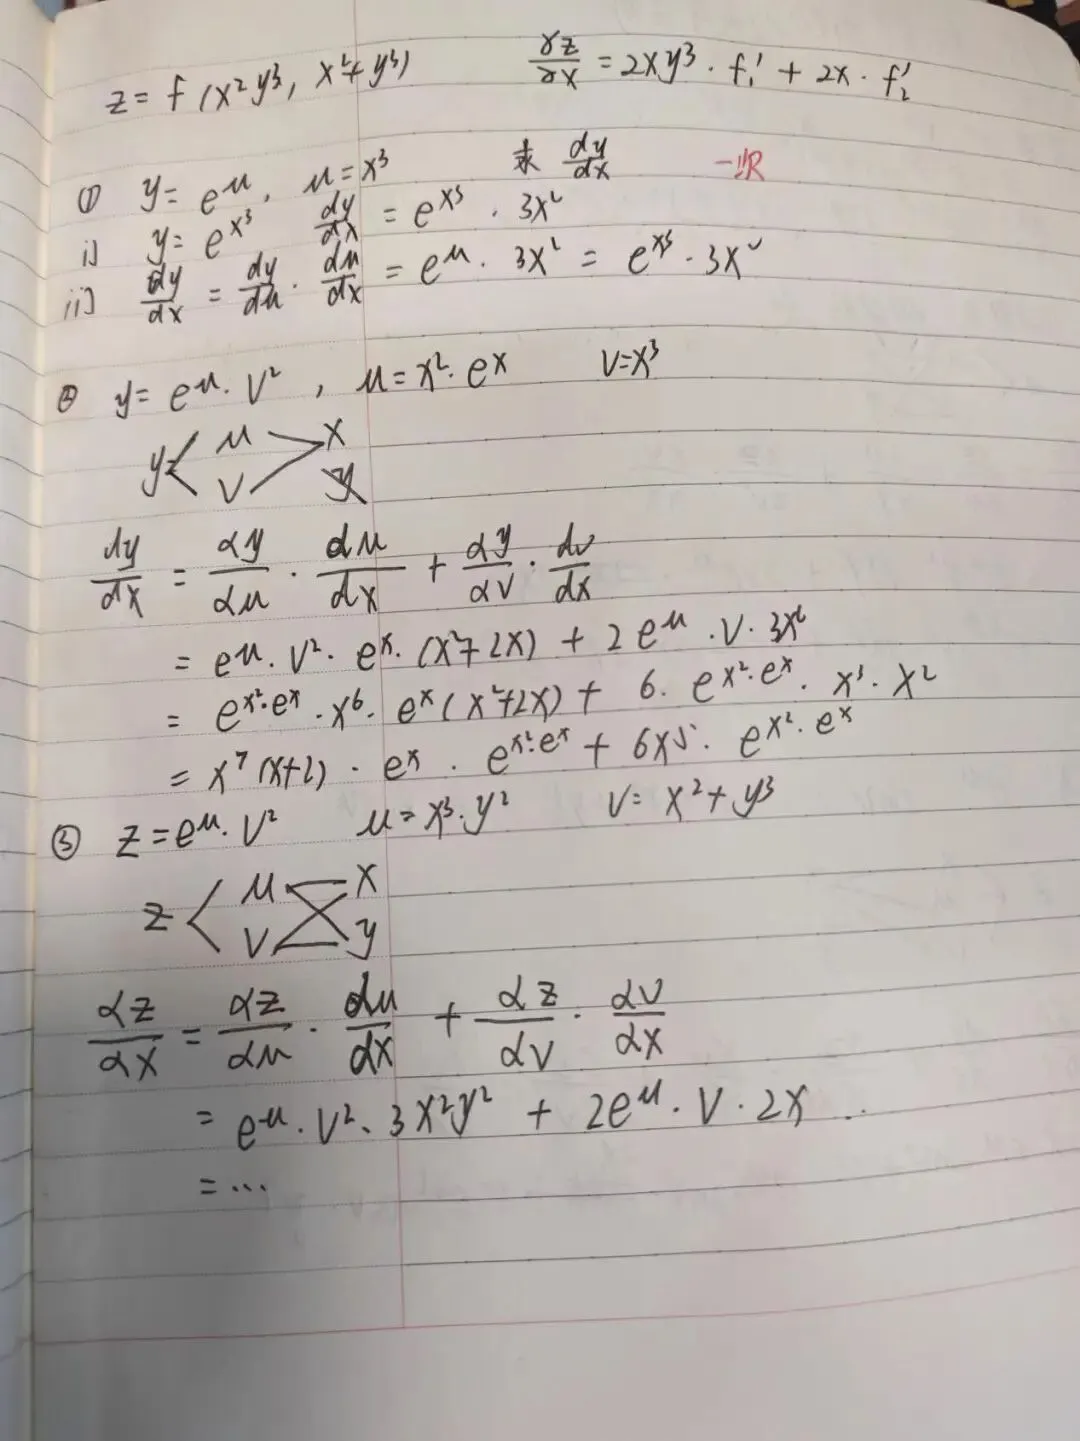 z = f(x²y³, x²+y³)  ∂z/∂x = 2xy³ · f₁' + 2x · f₂'
① y = e^u, u = x³  求 dy/dx
i) y = e^{x³}  dy/dx = e^{x³} · 3x²
ii) dy/dx = dy/du · du/dx = e^u · 3x² = e^{x³} · 3x²
② y = e^u · v², u = x² · e^x  v = x³
y u x
v y
dy/dx = ∂y/∂u · du/dx + ∂y/∂v · dv/dx
= e^u · v² · e^x · (x²+2x) + 2e^u · v · 3x²
= e^{x²·e^x} · x⁶ · e^x(x²+2x) + 6 · e^{x²·e^x} · x³ · x²
= x⁷(x+2) · e^x · e^{x²·e^x} + 6x⁵ · e^{x²·e^x}
③ z = e^u · v²  u = x³ · y²  v = x²+y³
z u x
v y
∂z/∂x = ∂z/∂u · du/dx + ∂z/∂v · ∂v/∂x
= e^u · v² · 3x²y² + 2e^u · v · 2x ..
= ...